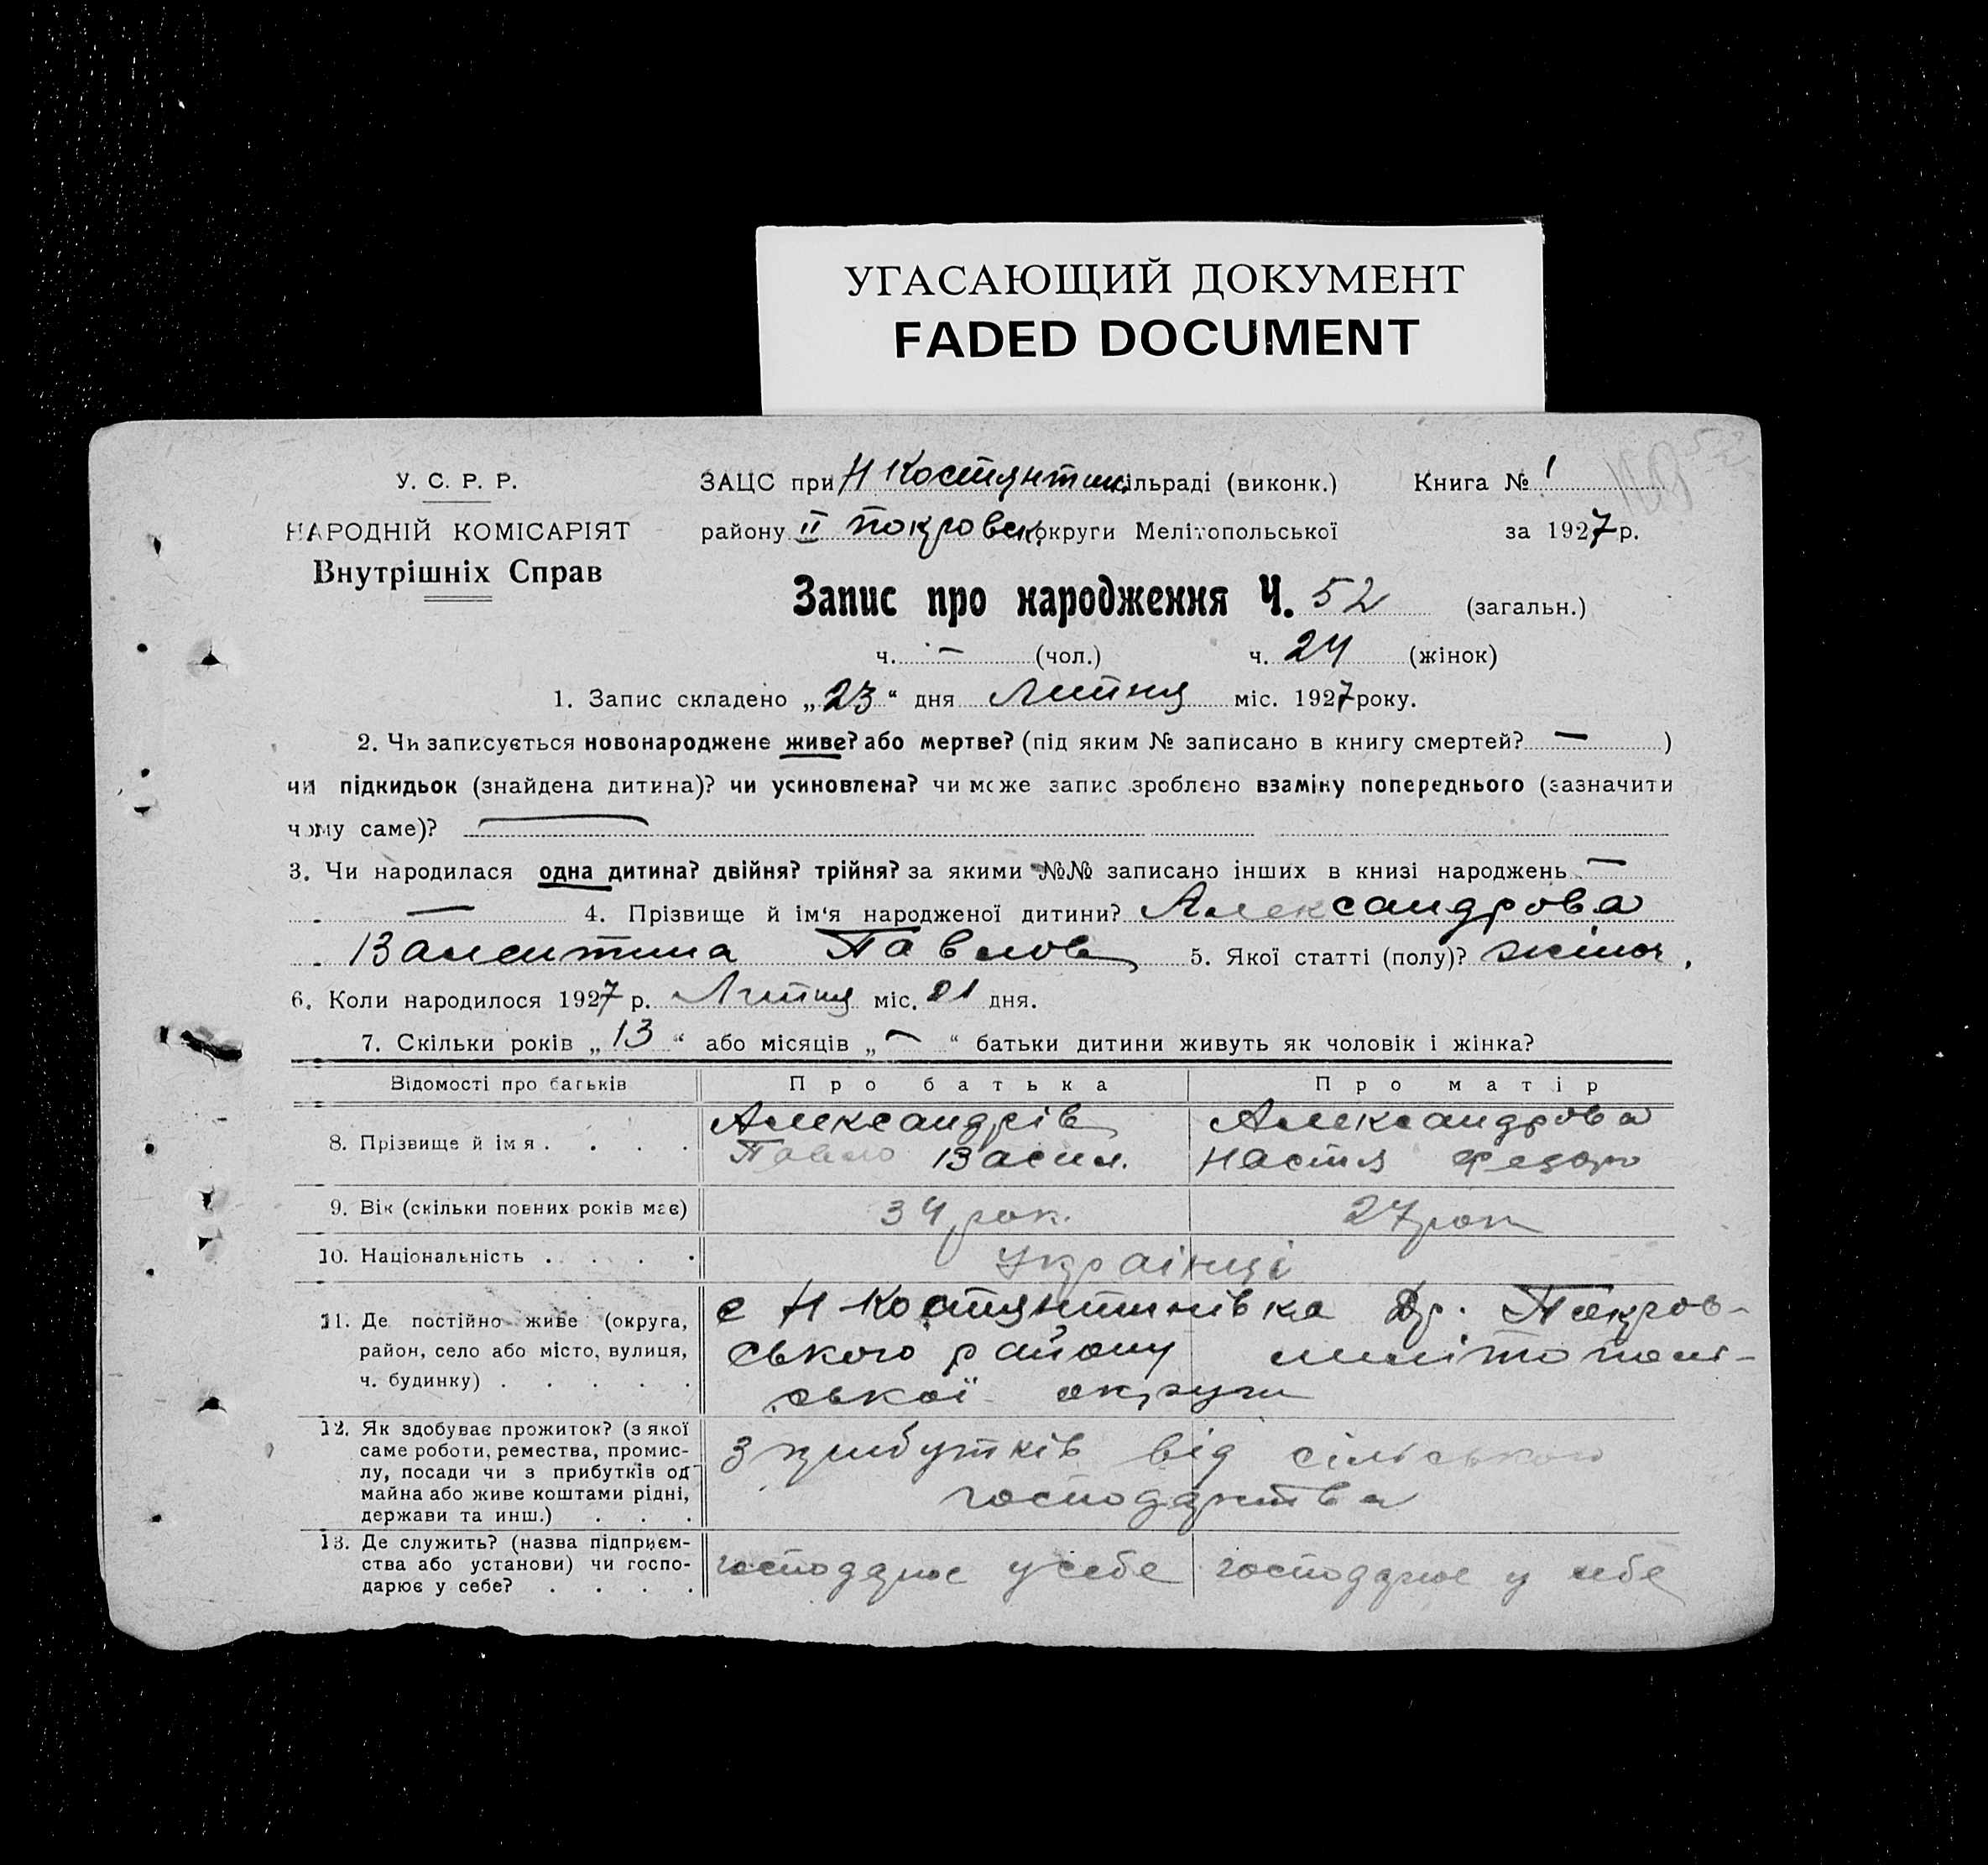 УГАСАЮЩИЙ ДОКУМЕНТ
FADED DOCUMENT
У. С. Р. Р.
НАРОДНІЙ КОМІСАРІЯТ
Внутрішніх Справ
ЗАЦС при Н Костянтин. сільраді (виконк.) Книга № 1
району II Покровськ. округи Мелітопольської за 1927 р.
52
Запис про народження Ч. 52 (загальн.)
ч. — (чол.) ч. 24 (жінок)
1. Запис складено „23“ дня Липня міс. 1927 року.
2. Чи записується новонароджене живе? або мертве? (під яким № записано в книгу смертей? — )
чи підкидьок (знайдена дитина)? чи усиновлена? чи може запис зроблено взаміну попереднього (зазначити
чому саме)? —
3. Чи народилася одна дитина? двійня? трійня? за якими №№ записано інших в книзі народжень —
— 4. Прізвище й ім‘я народженої дитини? Александрова
Валентина Павлов 5. Якої статті (полу)? жіноч.
6. Коли народилось 1927 р. Липня міс. 21 дня.
7. Скільки років „13“ або місяців „—“ батьки дитини живуть як чоловік і жінка?
Відомості про батьків Про батька Про матір
8. Прізвище й імя . . . . Александрів Александрова
Павло Васил. Настя Федоро
9. Вік (скільки повних років має) 34 рок. 27 рок
10. Національність . . . . Українці
11. Де постійно живе (округа, район, село або місто, вулиця, ч. будинку) . . . . . с Н Костянтинівка Др. Покров-
ського району милітополь-
ської округи
12. Як здобуває прожиток? (з якої саме роботи, ремества, промислу, посади чи з прибутків од майна або живе коштами рідні, держави та инш.) . . . З прибутків від сільського
господарства
13. Де служить? (назва підприємства або установи) чи господарює у себе? . . . . господарює у себе господарює у себе